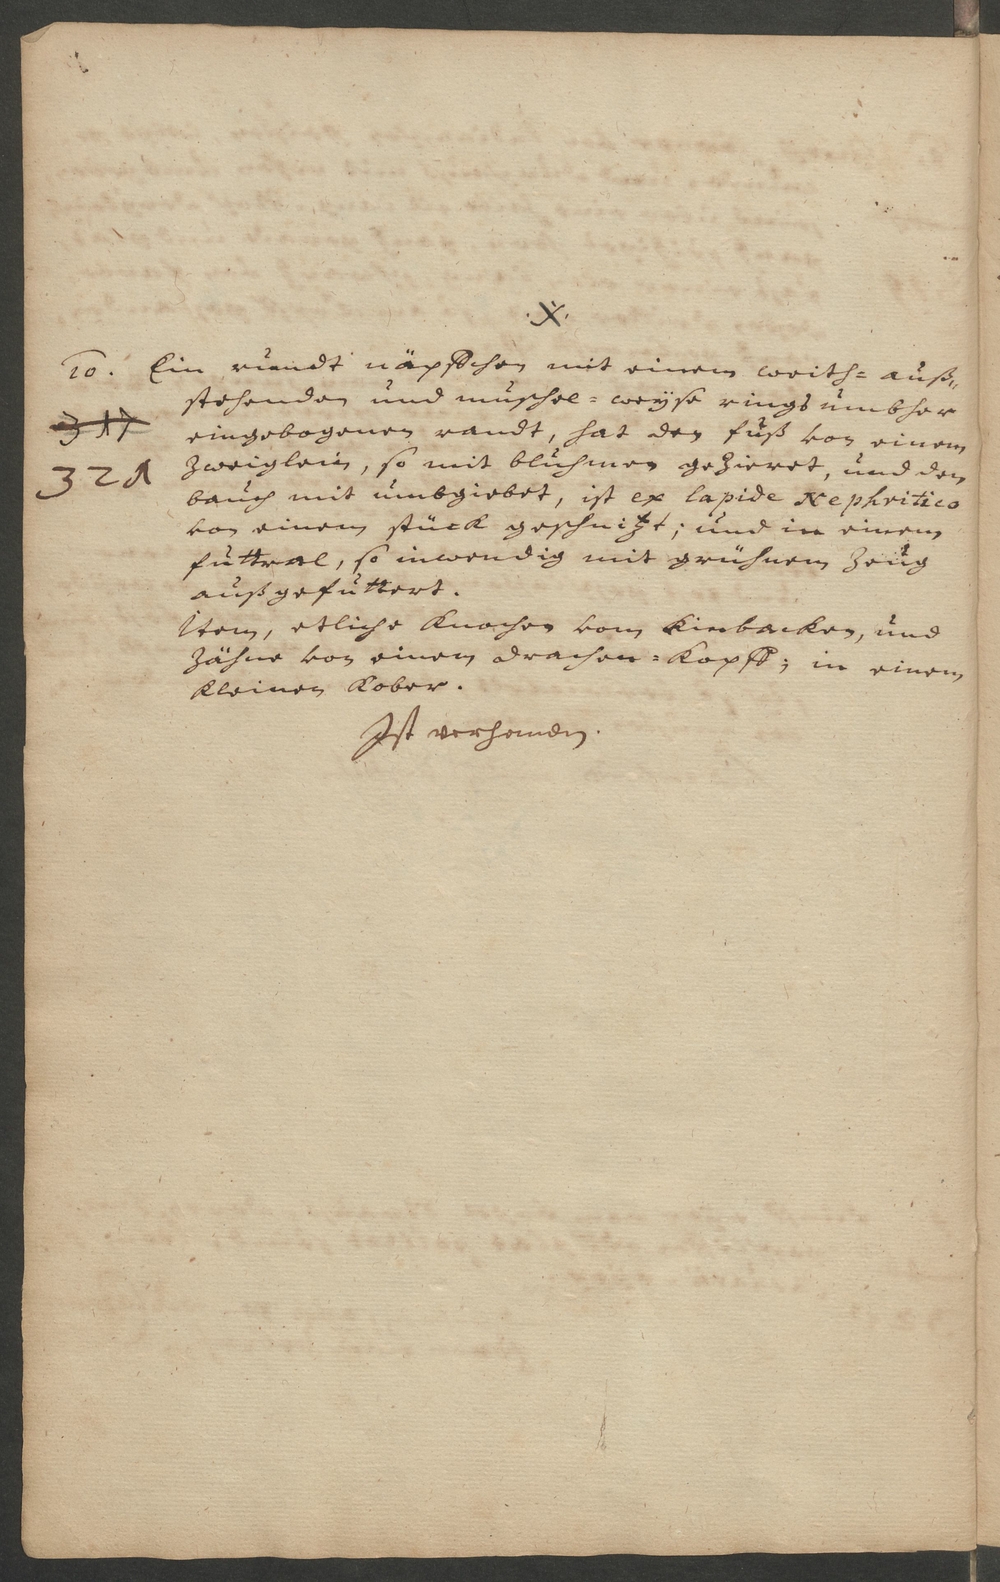 .X.
10. Ein rundt näpffchen mit einem weith= auß„
stehenden und muschel=weÿse rings umbher
317
eingebogenen randt, hat den fuß von einem
321
Zweiglein, so mit bluhmen geZieret, und den
bauch mit umbgiebet, ist ex lapide Nephritico
von einem stück geschnitzt; und in einem
futtral, so inwendig mit grühnem Zeug
außgefuttert.
Item, etliche Knochen vom Kinbacken, und
Zähne von einem drachen=Kopff; in einem
Kleinen Kober.
Ist verhanden.